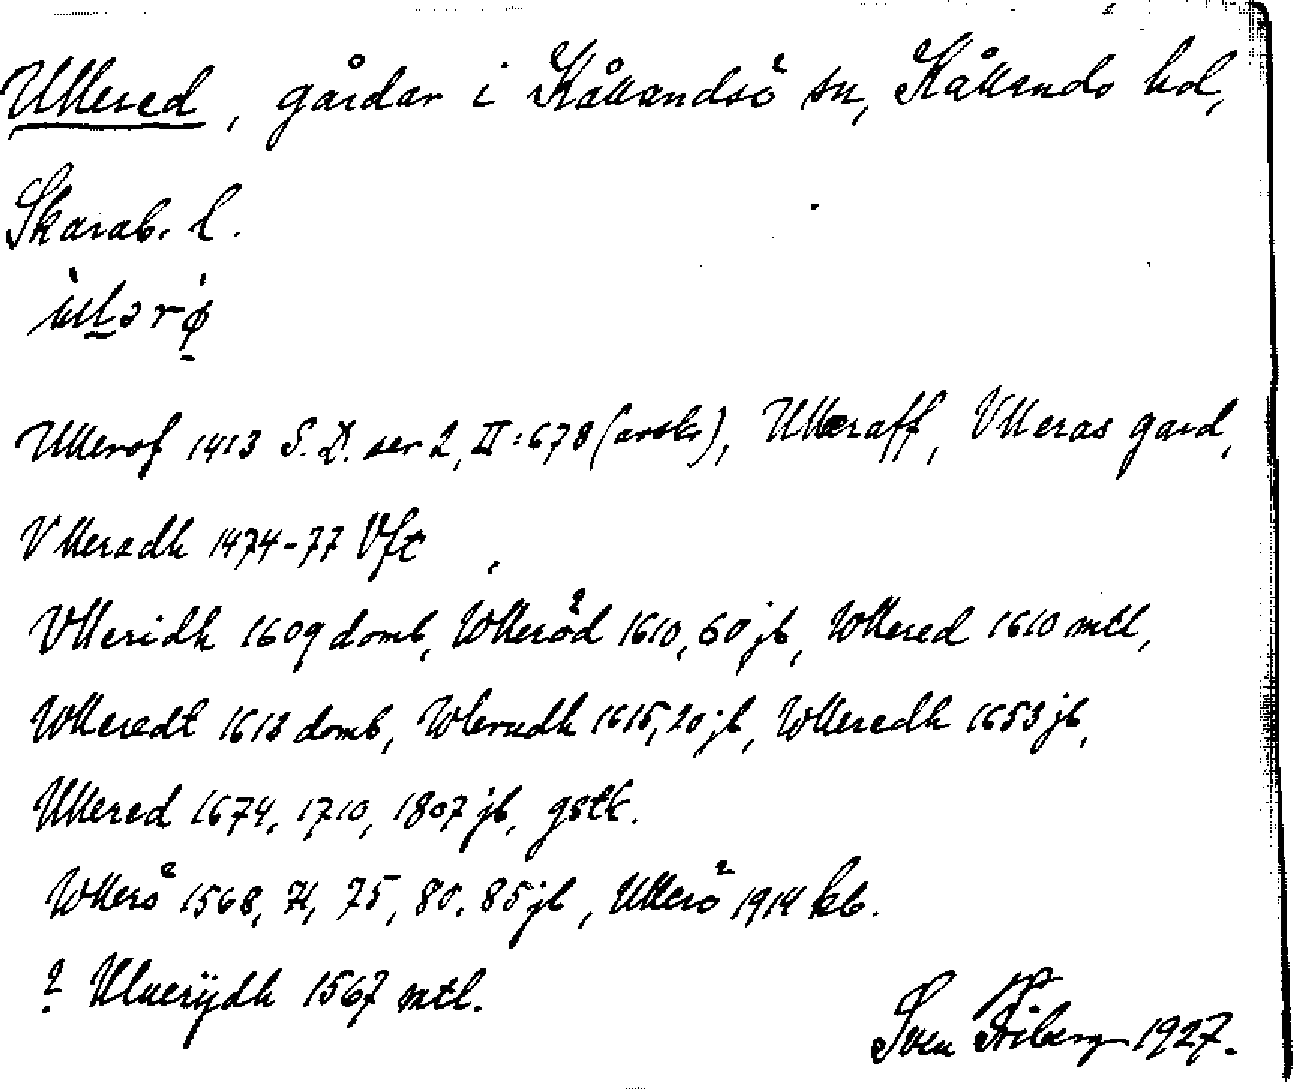 Ullered, gårdar i Kållandsö sn, Kållands hd,
Skarab. l.
Ullerof 1413 S. D. ser 2, II: 678 (avskr), Ulleraff, Vlleras gard,
Vlleradh 1474-77 Vft
Vlleridh 1609 domb, Wlleröd 1610, 60 jb, Wllered 1610 mtl,
Wlleredt 1613 domb, Wlerudh 1615, 20 jb, Wlleredh 1653 jb,
Ullered 1674, 1710, 1807 jb, gstk.
Wllerö 1568, 71, 75, 80, 85 jb, Ullerö 1914 kb.
? Vluerÿdh 1567 mtl.
Sven Friberg 1927.